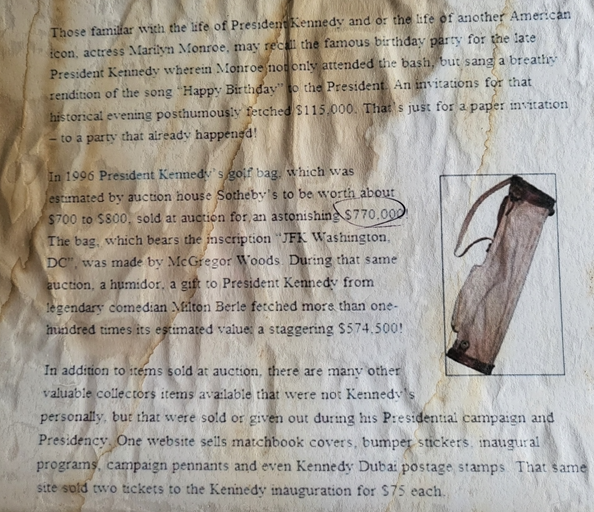 Those familiar with the life of President Kennedy and or the life of another American
icon, actress Marilyn Monroe, may recall the famous birthday party for the late
President Kennedy wherein Monroe not only attended the bash, but sang a breathy
rendition of the song "Happy Birthday" to the President. An invitations for that
historical evening posthumously fetched $115,000. That's just for a paper invitation
– to a party that already happened!
In 1996 President Kennedy's golf bag, which was
estimated by auction house Sotheby's to be worth about
$700 to $800, sold at auction for an astonishing $770,000!
The bag, which bears the inscription "JFK Washington,
DC", was made by McGregor Woods. During that same
auction, a humidor, a gift to President Kennedy from
legendary comedian Milton Berle fetched more than one-
hundred times its estimated value: a staggering $574,500!
In addition to items sold at auction, there are many other
valuable collectors items available that were not Kennedy's
personally, but that were sold or given out during his Presidential campaign and
Presidency. One website sells matchbook covers, bumper stickers, inaugural
programs, campaign pennants and even Kennedy Dubai postage stamps. That same
site sold two tickets to the Kennedy inauguration for $75 each.